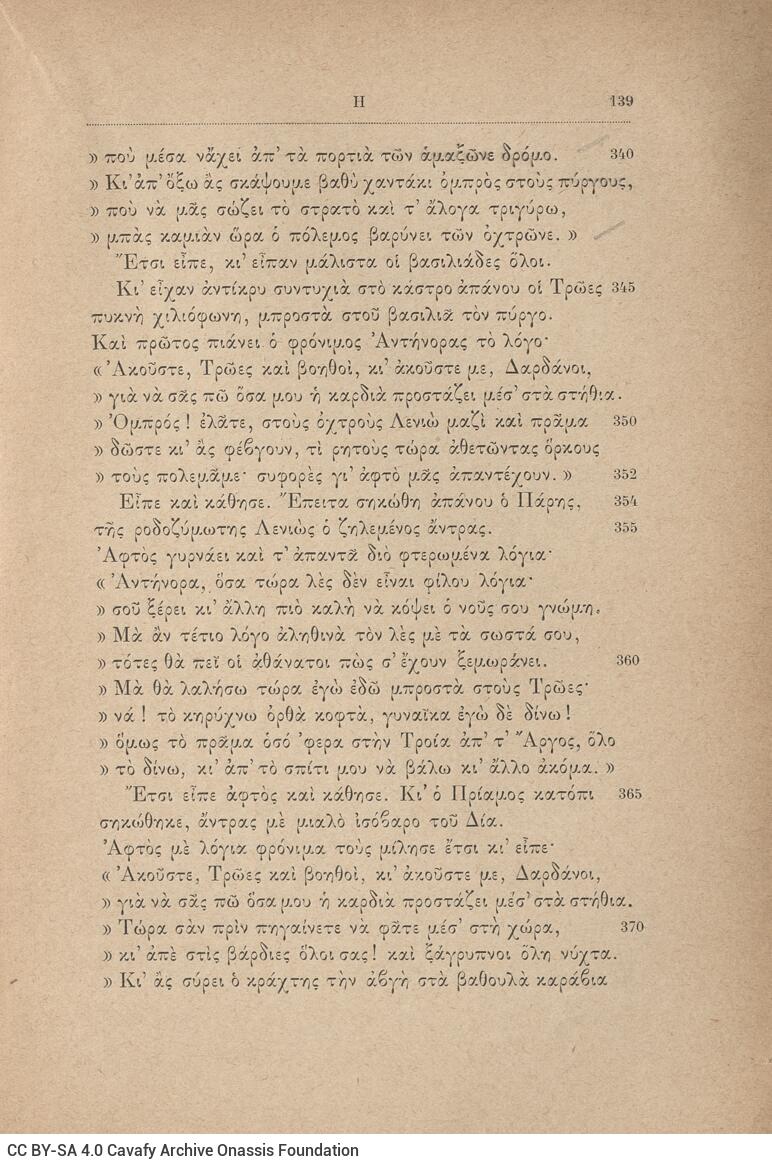 Η 139
» ποὺ μέσα νἄχει ἀπ' τὰ πορτιὰ τῶν ἁμαξῶνε δρόμο. 340
» Κι' ἀπ' ὄξω ἂς σκάψουμε βαθὺ χαντάκι ὀμπρὸς στοὺς πύργους,
» ποὺ νὰ μᾶς σώζει τὸ στρατὸ καὶ τ' ἄλογα τριγύρω,
» μπὰς καμιὰν ὥρα ὁ πόλεμος βαρύνει τῶν ὀχτρῶνε. »
Ἔτσι εἶπε, κι' εἶπαν μάλιστα οἱ βασιλιάδες ὅλοι.
Κι' εἶχαν ἀντίκρυ συντυχιὰ στὸ κάστρο ἀπάνου οἱ Τρῶες 345
πυκνὴ χιλιόφωνη, μπροστὰ στοῦ βασιλιᾶ τὸν πύργο.
Καὶ πρῶτος πιάνει ὁ φρόνιμος Ἀντήνορας τὸ λόγο·
« Ἀκοῦστε, Τρῶες καὶ βοηθοί, κι' ἀκοῦστε με, Δαρδάνοι,
» γιὰ νὰ σᾶς πῶ ὅσα μου ἡ καρδιὰ προστάζει μέσ' στὰ στήθια.
» Ὀμπρός ! ἐλᾶτε, στοὺς ὀχτροὺς Λενιὼ μαζὶ καὶ πρᾶμα 350
» δῶστε κι' ἂς φέβγουν, τὶ ρητοὺς τώρα ἀθετῶντας ὅρκους
» τοὺς πολεμᾶμε· συφορὲς γι' ἀφτὸ μᾶς ἀπαντέχουν. » 352
Εἶπε καὶ κάθησε. Ἔπειτα σηκώθη ἀπάνου ὁ Πάρης, 354
τῆς ροδοζύμωτης Λενιῶς ὁ ζηλεμένος ἄντρας. 355
Ἀφτὸς γυρνάει καὶ τ' ἀπαντᾶ διὸ φτερωμένα λόγια·
« Ἀντήνορα, ὅσα τώρα λὲς δὲν εἶναι φίλου λόγια·
» σοῦ ξέρει κι' ἄλλη πιὸ καλὴ νὰ κόψει ὁ νοῦς σου γνώμη.
» Μὰ ἂν τέτιο λόγο ἀληθινὰ τὸν λὲς μὲ τὰ σωστά σου,
» τότες θὰ πεῖ οἱ ἀθάνατοι πὼς σ' ἔχουν ξεμωράνει. 360
» Μὰ θὰ λαλήσω τώρα ἐγὼ ἐδῶ μπροστὰ στοὺς Τρῶες·
» νά ! τὸ κηρύχνω ὀρθὰ κοφτά, γυναῖκα ἐγὼ δὲ δίνω !
» ὅμως τὸ πρᾶμα ὁσό 'φερα στὴν Τροία ἀπ' τ' Ἄργος, ὅλο
» τὸ δίνω, κι' ἀπ' τὸ σπίτι μου νὰ βάλω κι' ἄλλο ἀκόμα. »
Ἔτσι εἶπε ἀφτὸς καὶ κάθησε. Κι' ὁ Πρίαμος κατόπι 365
σηκώθηκε, ἄντρας μὲ μιαλὸ ἰσόβαρο τοῦ Δία.
Ἀφτὸς μὲ λόγια φρόνιμα τοὺς μίλησε ἔτσι κι' εἶπε·
« Ἀκοῦστε, Τρῶες καὶ βοηθοί, κι' ἀκοῦστε με, Δαρδάνοι,
» γιὰ νὰ σᾶς πῶ ὅσα μου ἡ καρδιὰ προστάζει μέσ' στὰ στήθια.
» Τώρα σὰν πρὶν πηγαίνετε νὰ φᾶτε μέσ' στὴ χώρα, 370
» κι' ἀπὲ στὶς βάρδιες ὅλοι σας ! καὶ ξάγρυπνοι ὅλη νύχτα.
» Κι' ἂς σύρει ὁ κράχτης τὴν ἀβγὴ στὰ βαθουλὰ καράβια
CC BY-SA 4.0 Cavafy Archive Onassis Foundation